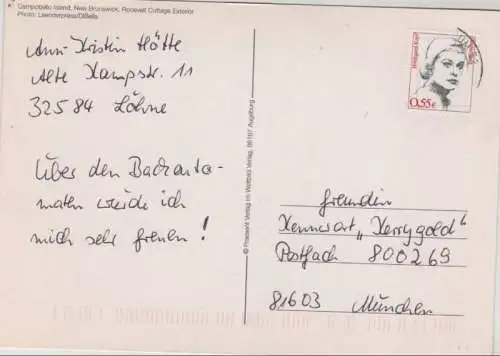 Campobello Island, New Brunswick, Roosevelt Cottage Exterior
Photo: Laenderpress/DiBella
Ann-Kristin Hötte
Alte Kampstr. 11
32584 Löhne
Über den Backauto-
maten würde ich
mich sehr freuen!
© Praesent Verlag im Weltbild Verlag, 86167 Augsburg
Hildegard Knef
0,55€
freundin
Kennwort „Kerrygold"
Postfach 800269
81603 München